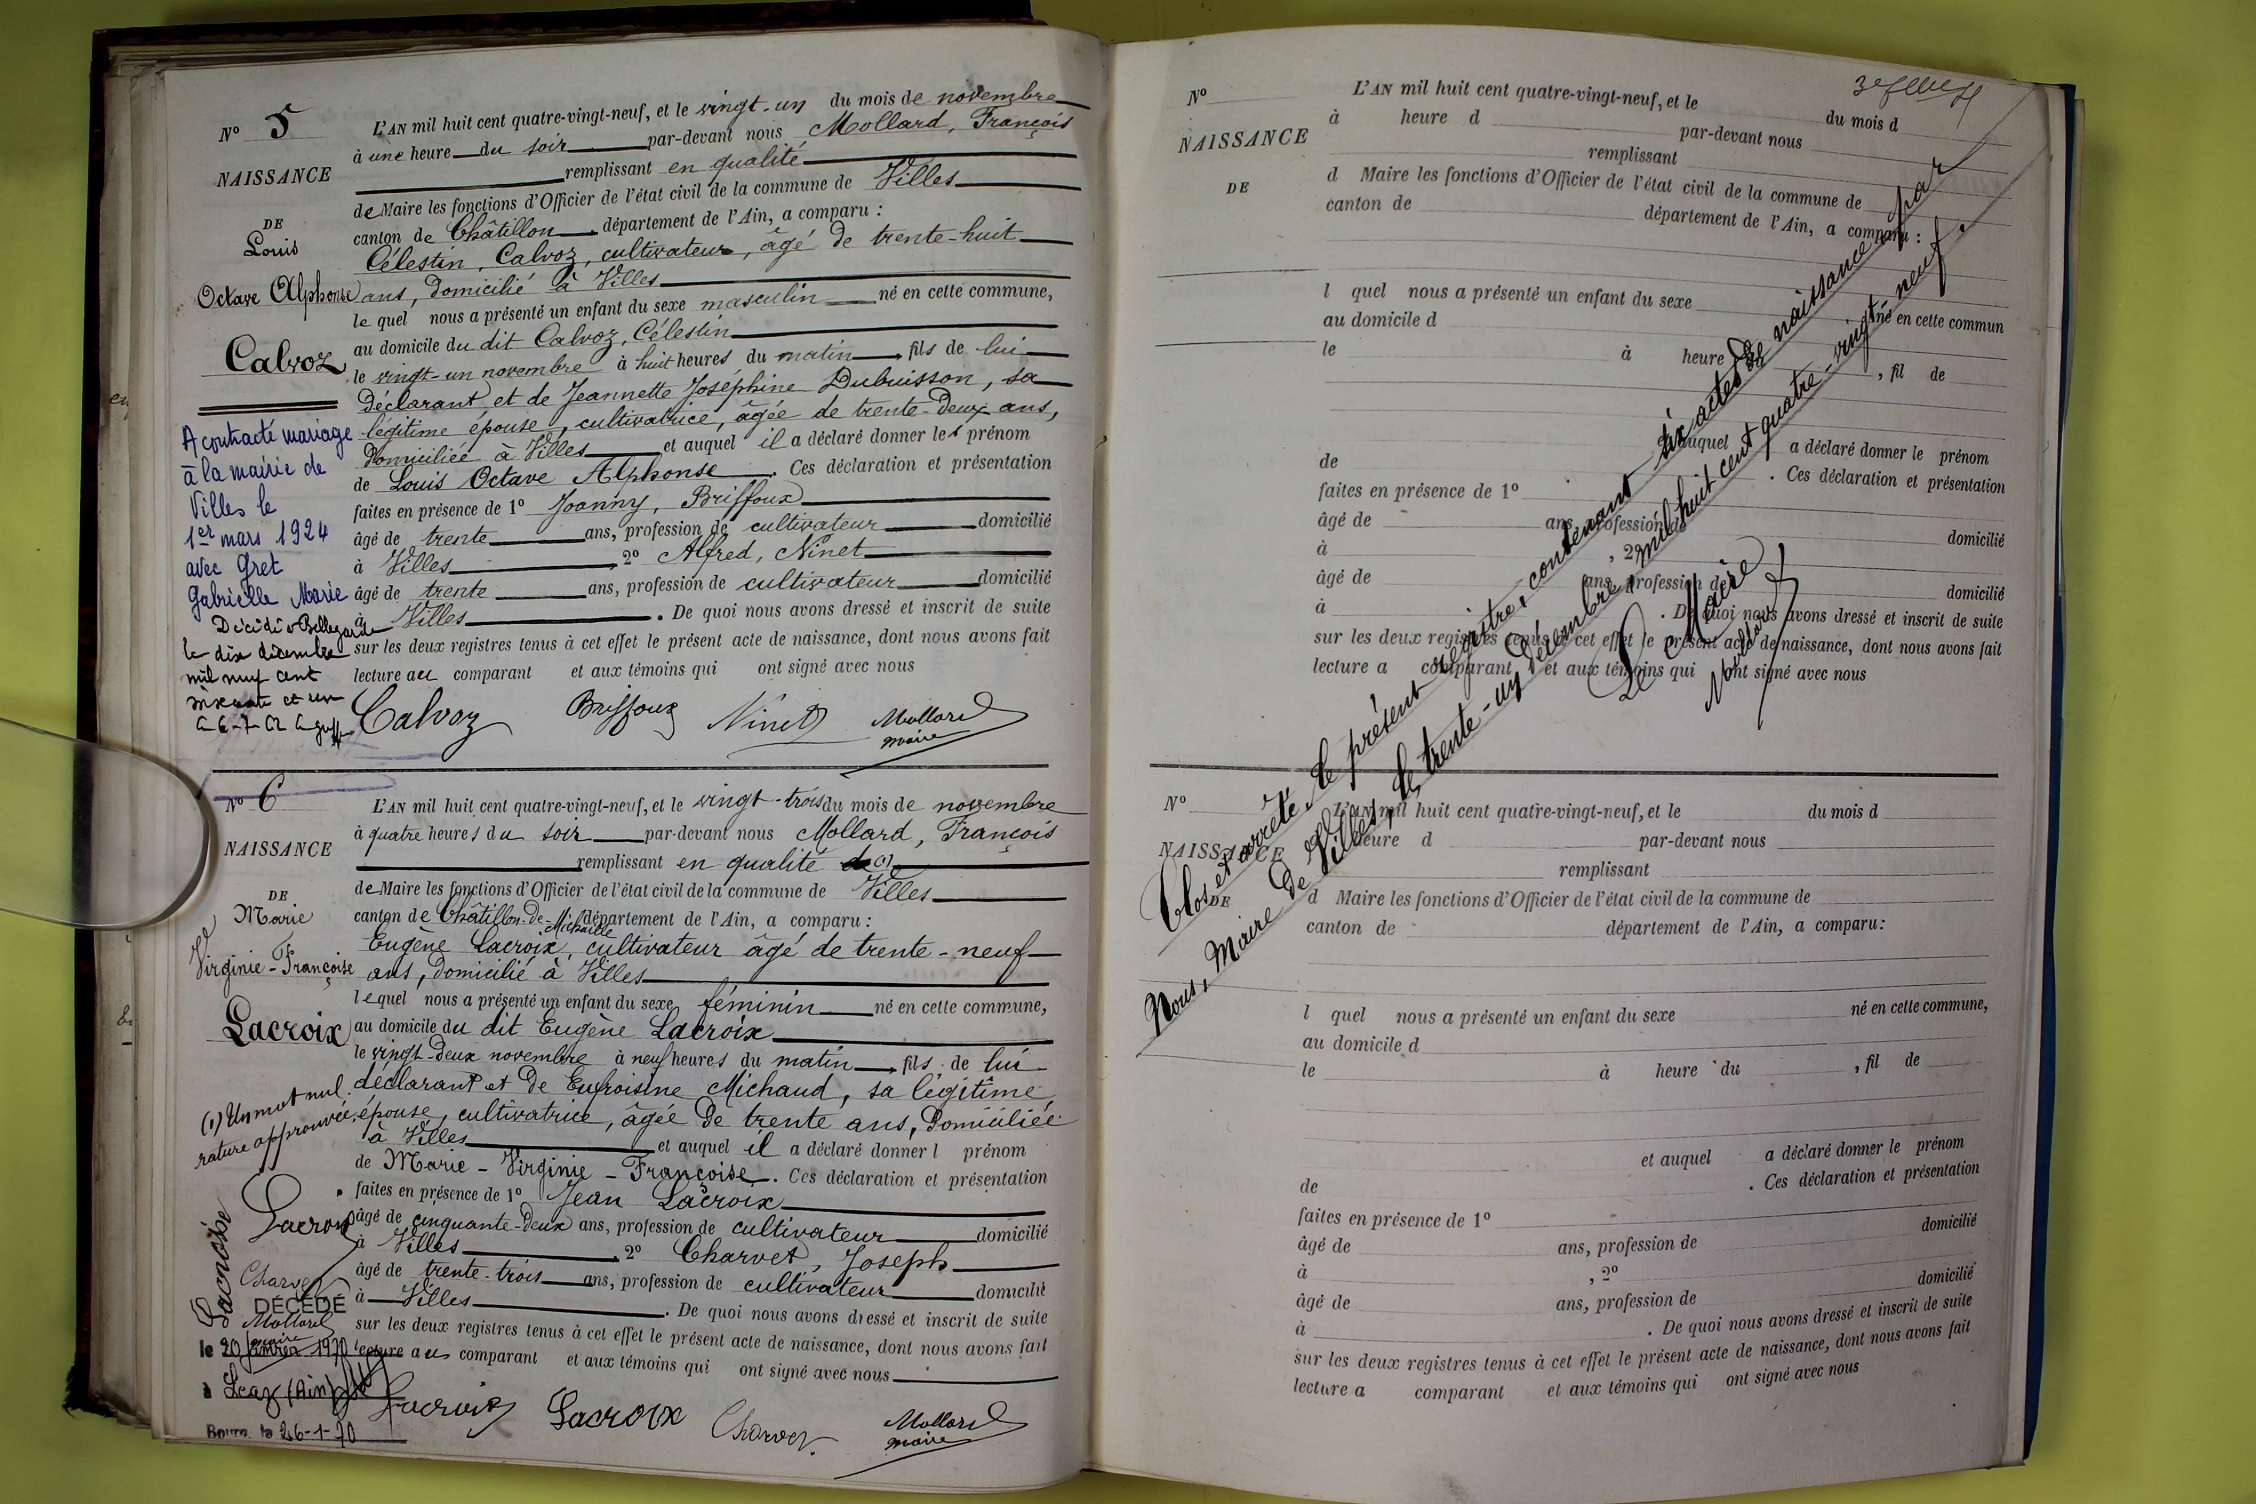 N° 5
NAISSANCE
DE
Louis
Octave Alphonse
Calvoz
A contracté mariage
à la mairie de
Villes le
1er mars 1924
avec Gret
Gabrielle Marie
Décédé à Bellegarde
le dix décembre
mil neuf cent
soixante et un
L'AN mil huit cent quatre-vingt-neuf, et le vingt-un du mois de novembre
à une heure du soir par-devant nous Mollard, François
remplissant en qualité
de Maire les fonctions d'Officier de l'état civil de la commune de Villes
canton de Châtillon département de l'Ain, a comparu :
Célestin, Calvoz, cultivateur, âgé de trente-huit
ans, domicilié à Villes
le quel nous a présenté un enfant du sexe masculin né en cette commune,
au domicile du dit Calvoz, Célestin
le vingt-un novembre à huit heures du matin, fils de lui
déclarant et de Jeannette Joséphine Dubuisson, sa
légitime épouse, cultivatrice, âgée de trente-deux ans,
domiciliée à Villes et auquel il a déclaré donner les prénom
de Louis Octave Alphonse. Ces déclaration et présentation
faites en présence de 1° Joanny, Briffoux
âgé de trente ans, profession de cultivateur domicilié
à Villes, 2° Alfred, Ninet
âgé de trente ans, profession de cultivateur domicilié
à Villes. De quoi nous avons dressé et inscrit de suite
sur les deux registres tenus à cet effet le présent acte de naissance, dont nous avons fait
lecture au comparant et aux témoins qui ont signé avec nous
Calvoz Briffoux Ninet Mollard
maire
N° 6
NAISSANCE
DE
Marie
Virginie-Françoise
Lacroix
(1) Un mot nul
rature approuvée.
Lacroix
Lacroix
Charvet
Mollard
maire
DÉCÉDÉ
le 20 janvier 1970
à Leaz (Ain)
Bourg, le 26-1-70
L'AN mil huit cent quatre-vingt-neuf, et le vingt-trois du mois de novembre
à quatre heures du soir par-devant nous Mollard, François
remplissant en qualité de (1)
de Maire les fonctions d'Officier de l'état civil de la commune de Villes
canton de Châtillon-de-Michaille département de l'Ain, a comparu :
Eugène Lacroix, cultivateur âgé de trente-neuf
ans, domicilié à Villes
lequel nous a présenté un enfant du sexe féminin né en cette commune,
au domicile du dit Eugène Lacroix
le vingt-deux novembre à neuf heures du matin, fils de lui
déclarant et de Eufroisine Michaud, sa légitime
épouse, cultivatrice, âgée de trente ans, domiciliée
à Villes et auquel il a déclaré donner l prénom
de Marie-Virginie-Françoise. Ces déclaration et présentation
faites en présence de 1° Jean Lacroix
âgé de cinquante-deux ans, profession de cultivateur domicilié
à Villes, 2° Charvet, Joseph
âgé de trente-trois ans, profession de cultivateur domicilié
à Villes. De quoi nous avons dressé et inscrit de suite
sur les deux registres tenus à cet effet le présent acte de naissance, dont nous avons fait
lecture au comparant et aux témoins qui ont signé avec nous
Lacroix Lacroix Charvet Mollard
maire
N°
NAISSANCE
DE
L'AN mil huit cent quatre-vingt-neuf, et le du mois d
à heure d par-devant nous
remplissant
d Maire les fonctions d'Officier de l'état civil de la commune de
canton de département de l'Ain, a comparu :
l quel nous a présenté un enfant du sexe né en cette commun
au domicile d
le à heure du , fil de
et auquel a déclaré donner le prénom
de . Ces déclaration et présentation
faites en présence de 1°
âgé de ans, profession de domicilié
à , 2°
âgé de ans, profession de domicilié
à . De quoi nous avons dressé et inscrit de suite
sur les deux registres tenus à cet effet le présent acte de naissance, dont nous avons fait
lecture a comparant et aux témoins qui ont signé avec nous
Clos et arrêté le présent registre, contenant six actes de naissance par
Nous, Maire de Villes, le trente-un décembre mil huit cent quatre-vingt-neuf.
Le Maire
Mollard
N°
NAISSANCE
DE
L'AN mil huit cent quatre-vingt-neuf, et le du mois d
heure d par-devant nous
remplissant
d Maire les fonctions d'Officier de l'état civil de la commune de
canton de département de l'Ain, a comparu:
l quel nous a présenté un enfant du sexe né en cette commune,
au domicile d
le à heure du , fil de
et auquel a déclaré donner le prénom
de . Ces déclaration et présentation
faites en présence de 1°
âgé de ans, profession de domicilié
à , 2°
âgé de ans, profession de domicilié
à . De quoi nous avons dressé et inscrit de suite
sur les deux registres tenus à cet effet le présent acte de naissance, dont nous avons fait
lecture a comparant et aux témoins qui ont signé avec nous